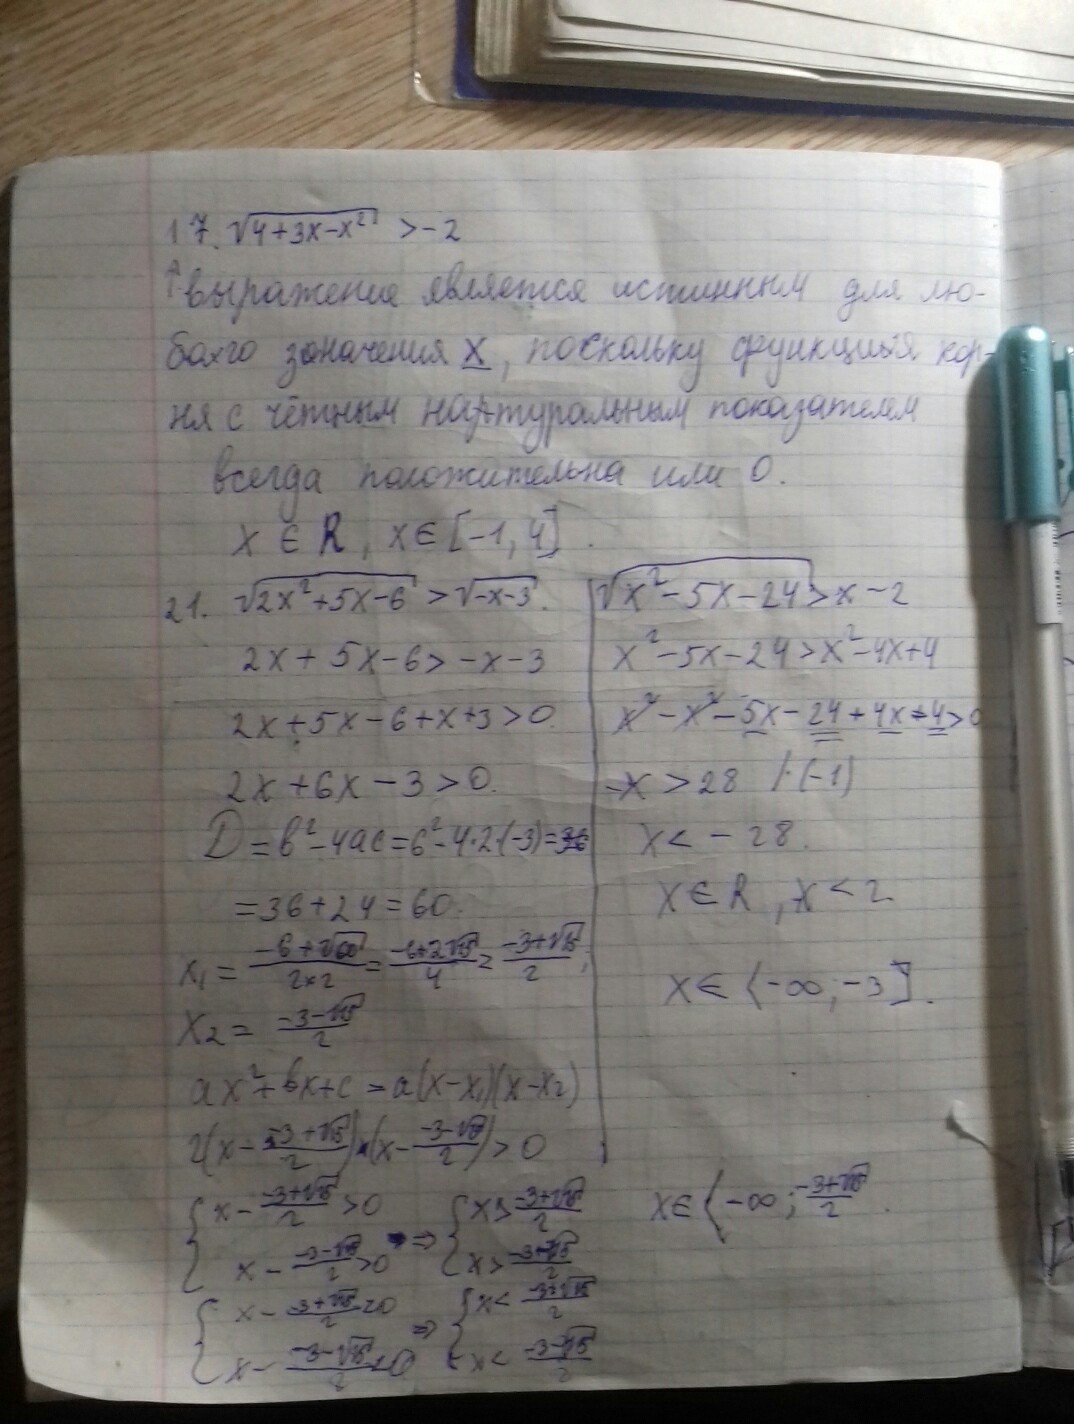 17. √(4+3x-x²) > -2
выражение является истинным для лю-
бого значения x, поскольку функция кор-
ня с чётным натуральным показателем
всегда положительна или 0.
x ∈ R, x ∈ [-1, 4].
21. √(2x²+5x-6) > √(-x-3).
2x + 5x - 6 > -x - 3
2x + 5x - 6 + x + 3 > 0.
2x + 6x - 3 > 0.
D = b² - 4ac = 6² - 4·2·(-3) = 36
= 36 + 24 = 60.
x₁ = (-6+√60)/(2×2) = (-6+2√15)/4 = (-3+√15)/2;
x₂ = (-3-√15)/2
ax² + bx + c = a(x-x₁)(x-x₂)
2(x - (-3+√15)/2)·(x - (-3-√15)/2) > 0
{ x - (-3+√15)/2 > 0
x - (-3-√15)/2 > 0 ⇒ { x > (-3+√15)/2
x > (-3-√15)/2
{ x - (-3+√15)/2 < 0
x - (-3-√15)/2 < 0 ⇒ { x < (-3+√15)/2
x < (-3-√15)/2
√(x²-5x-24) > x - 2
x² - 5x - 24 > x² - 4x + 4
x² - x² - 5x - 24 + 4x - 4 > 0
-x > 28 /·(-1)
x < -28.
x ∈ R, x < 2
x ∈ (-∞; -3].
x ∈ (-∞; (-3+√15)/2.